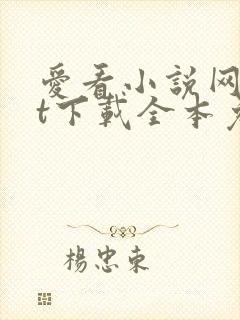 愛看小說网
t下載全本
楊忠東